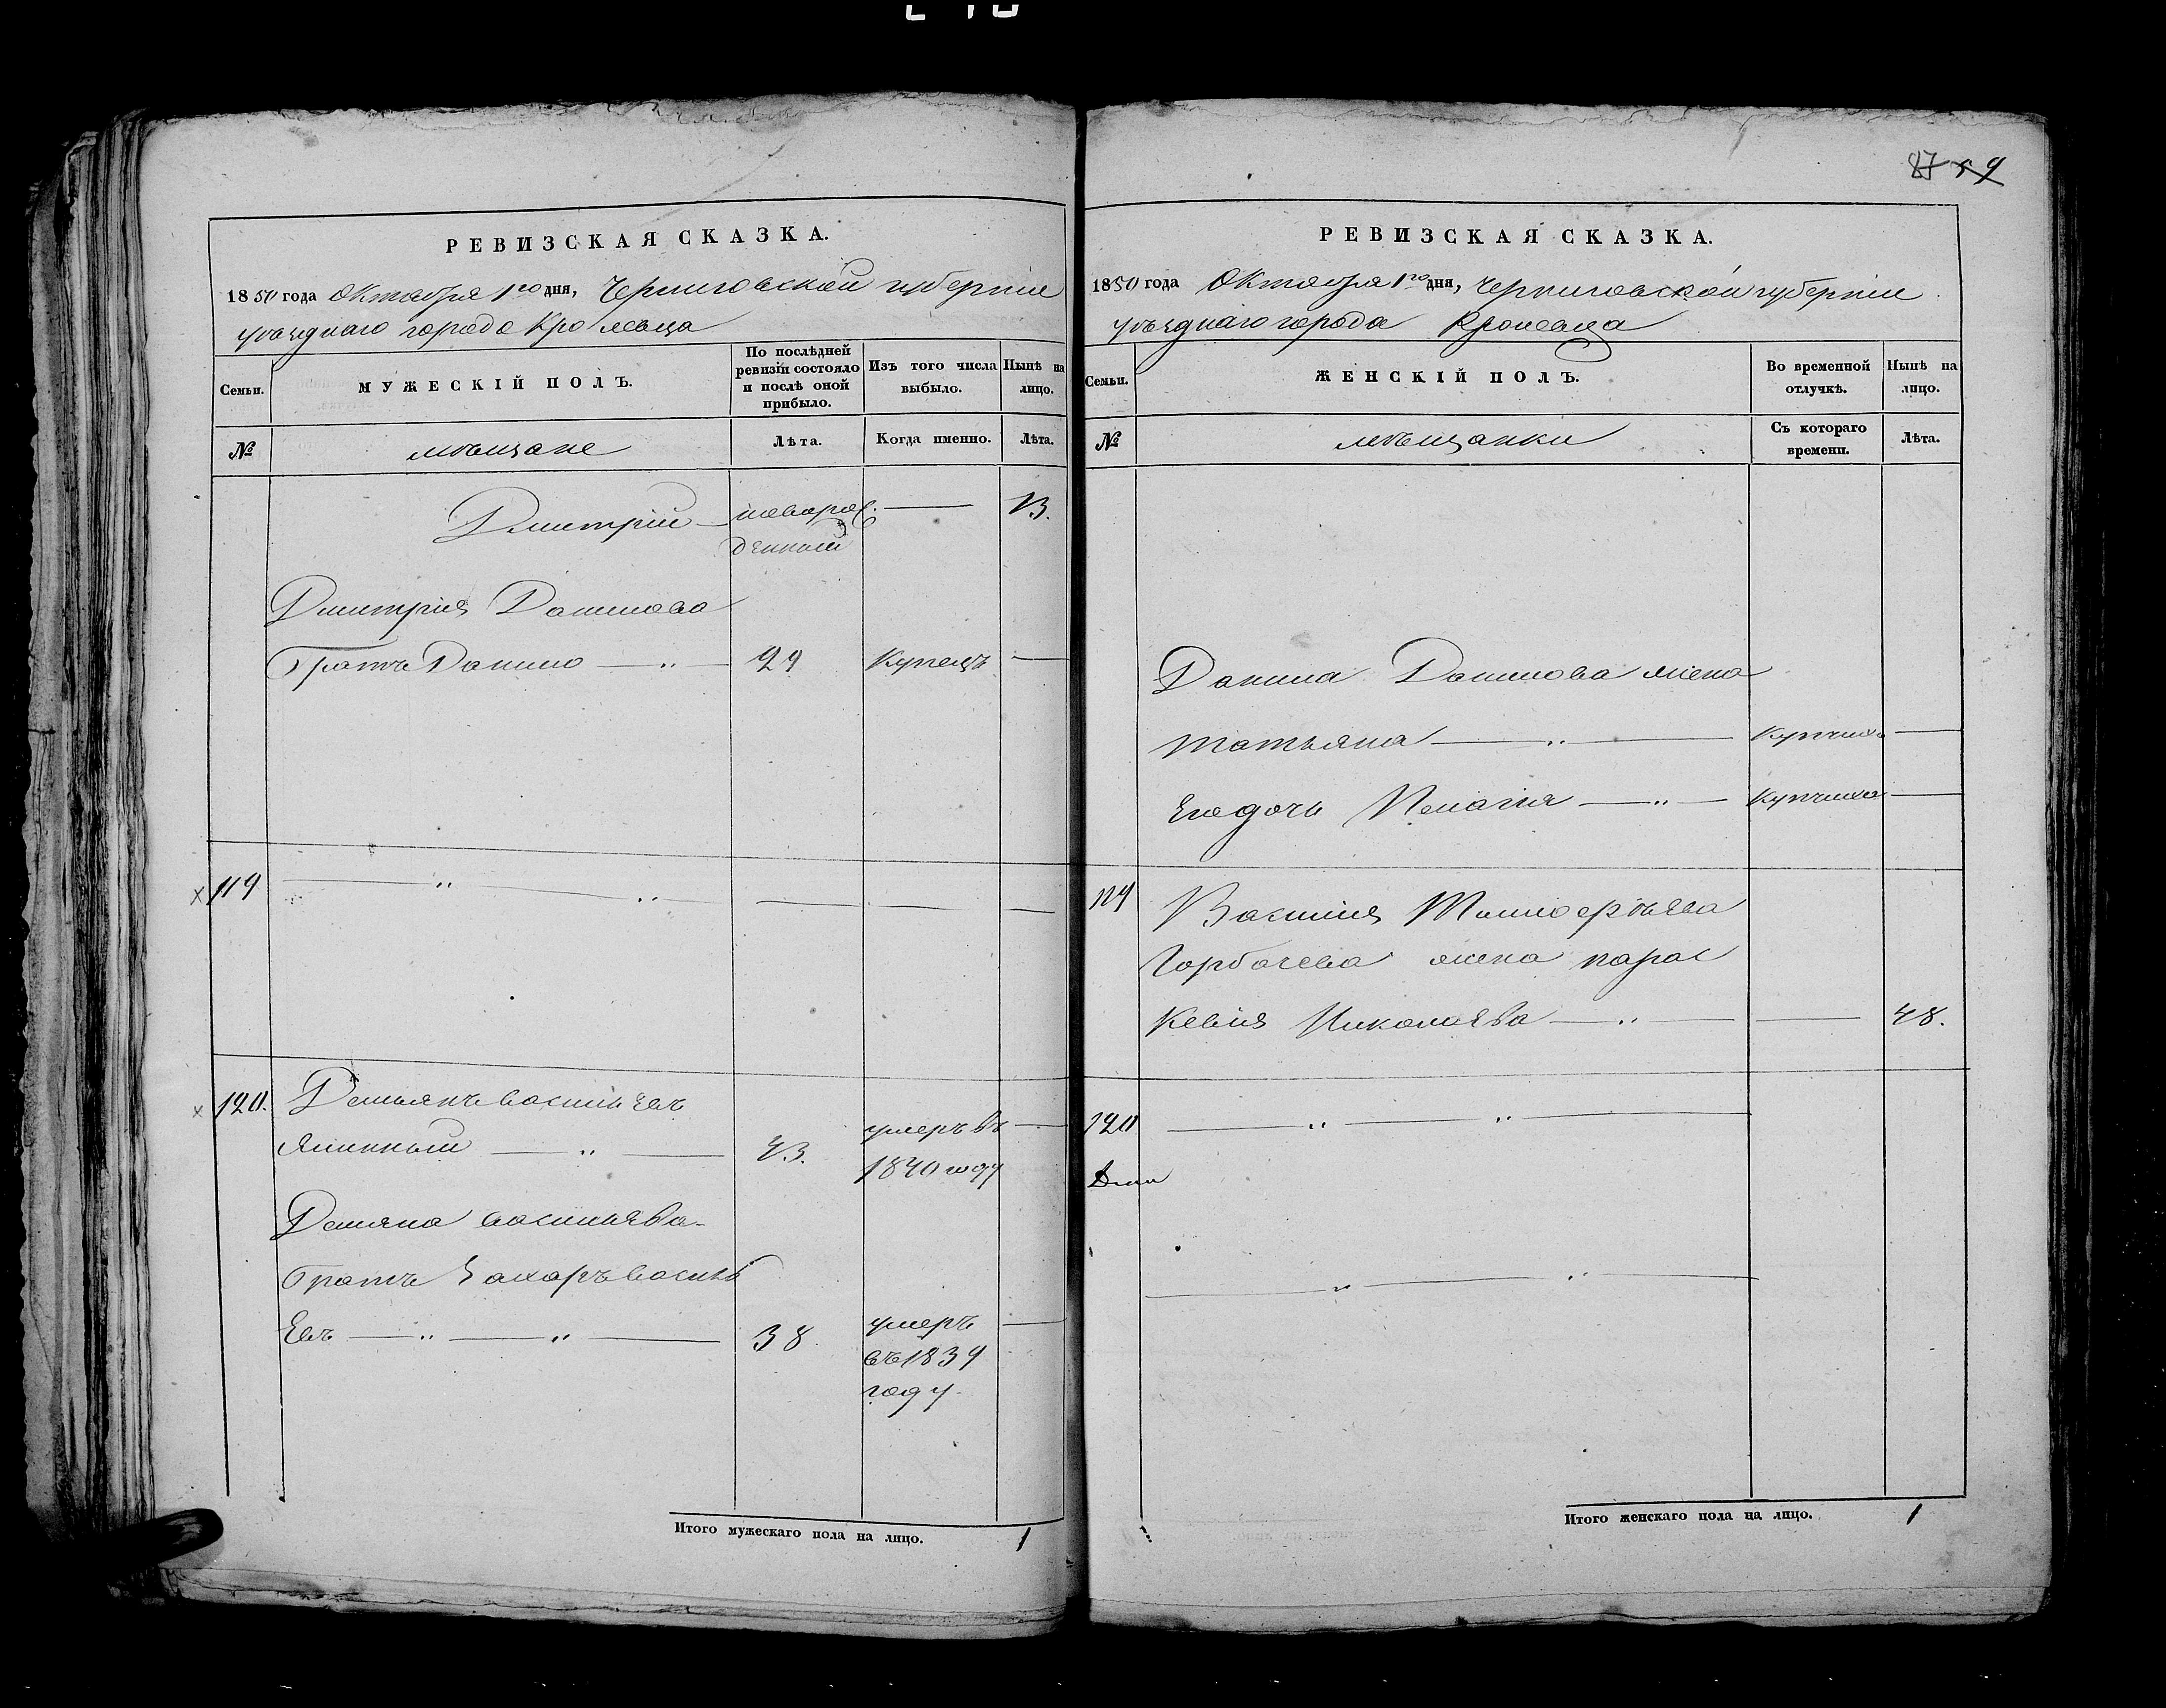 РЕВИЗСКАЯ СКАЗКА.
1850 года Октября 1го дня, Черниговской губернии
уѣзднаго города Кролевца
Семьи.
МУЖЕСКІЙ ПОЛЪ.
По послѣдней ревизіи состояло и послѣ оной прибыло.
Изъ того числа выбыло.
Нынѣ на лицо.
№
мѣщане
Лѣта.
Когда именно.
Лѣта.
Дмитрій — новорож — 13.
денный
Дмитрія Данилова
братъ Данило — 29 Купецъ —
119
120. Демьянъ Васильевъ
43. умеръ въ —
1840 году
Демяна Васильева
братъ Захаръ Василь
евъ — 38 умеръ —
въ 1839
году
Итого мужескаго пола на лицо. 1
87 59
РЕВИЗСКАЯ СКАЗКА.
1850 года Октября 1го дня, Черниговской губерніи
уѣзднаго города Кролевца
Семьи.
ЖЕНСКІЙ ПОЛЪ.
Во временной отлучкѣ.
Нынѣ на лицо.
№
мѣщанки
Съ котораго времени.
Лѣта.
Данила Данилова жена
татьяна — Купчиха —
Его дочь Пелагия — Купчиха —
119 Василия
Горбачева жена парас
кевия Николаева — 48.
120
Итого женскаго пола на лицо. 1